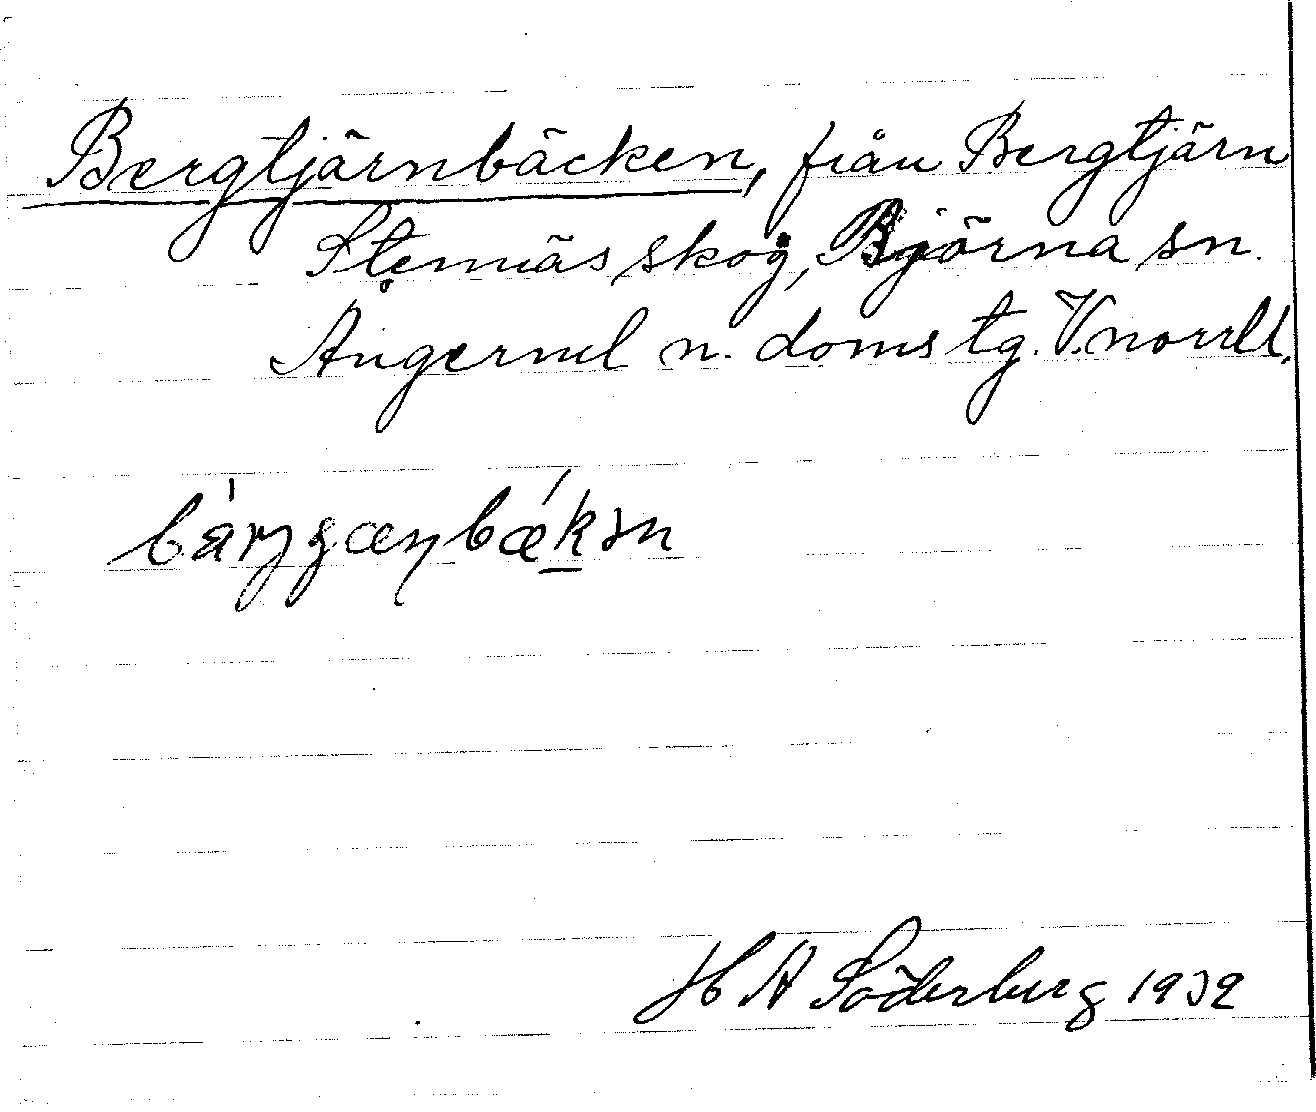 Bergtjärnbäcken, från Bergtjärn
Stennäs skog, Björna sn.
Ångerml n. doms tg. V.norrll.
H A Söderberg 1932